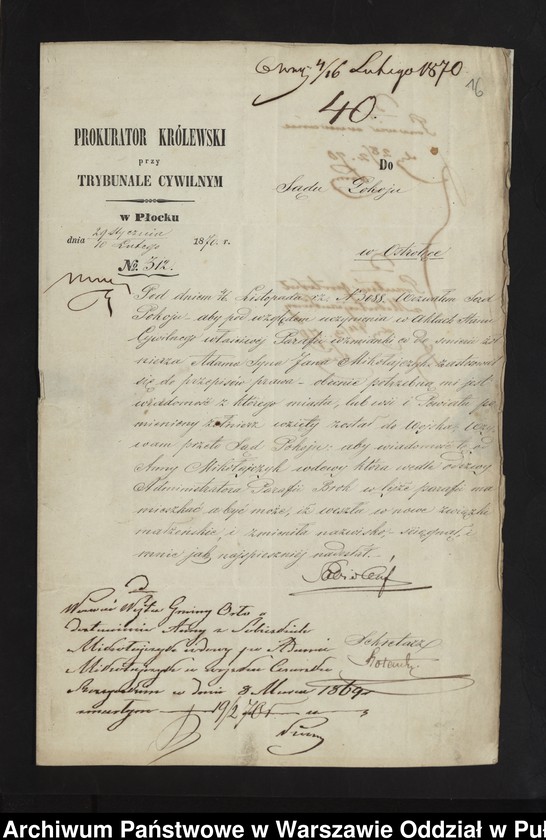 4/16 Lutego 1870
16
40.
PROKURATOR KRÓLEWSKI
przy
TRYBUNALE CYWILNYM
w Płocku
dnia 29 Stycznia
10 Lutego 1870. r.
No. 512.
Do
Sądu Pokoju
w Ostrołęce
Pod dniem Listopada r.z. N wezwałem Sąd
Pokoju aby pod względem uczynienia w Aktach Stanu
Cywilnego właściwej Parafii wzmianki o śmierci żoł
nierza Adama Syna Jana Mikołajczyk zastosował
się do przepisów prawa – obecnie potrzebną mi jest
wiadomość z którego miasta, lub wsi i Powiatu po
mieniony żołnierz wzięty został do Wojska, Wzy
wam przeto Sąd Pokoju: aby wiadomość tę od
Anny Mikołajczyk wdowy która wedle odezwy
Administratora Parafii Brok w tejże parafii ma
mieszkać a być może, iż weszła w nowe związki
małżeńskie i zmieniła nazwisko, ściągnął i
mnie jak najspieszniej nadesłał.
Sekretarz
Wezwać Wójta Gminy Orło o
dostawienie Anny z
Mikołajczyk wdowy po Adamie
Mikołajczyk w wojsku Cesarsko
w dniu 8 Marca 1869 r.
zmarłym 19/2 70 r.
Archiwum Państwowe w Warszawie Oddział w Puł